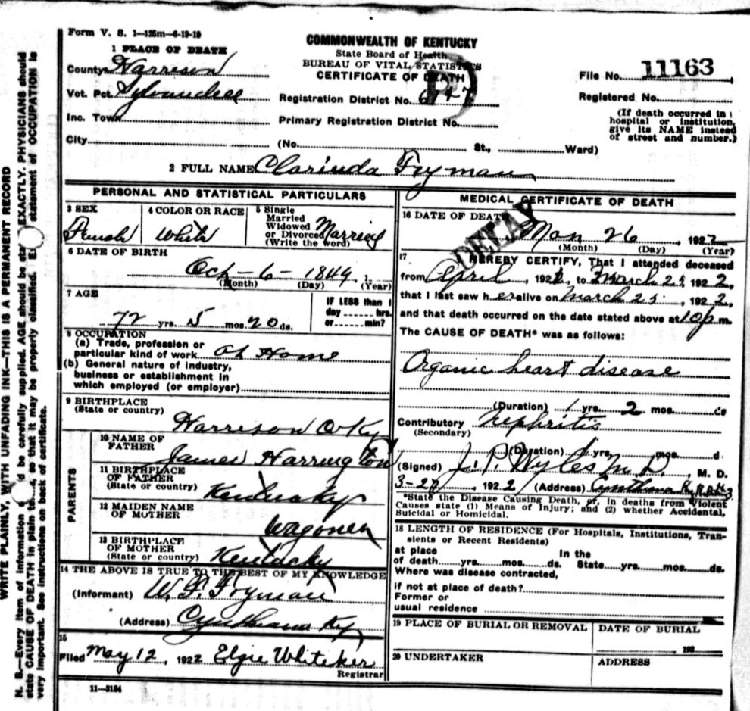 Form V. S. 1—125m—6-19-19
COMMONWEALTH OF KENTUCKY
State Board of Health
BUREAU OF VITAL STATISTICS
CERTIFICATE OF DEATH
1 PLACE OF DEATH
County Harrison
Vot. Pct.
Inc. Town
City
Registration District No.
Primary Registration District No.
File No. 11163
Registered No.
(If death occurred in
hospital or institution,
give its NAME instead
of street and number.)
(No. St., Ward)
2 FULL NAME Clarinda Fryman
PERSONAL AND STATISTICAL PARTICULARS
3 SEX
Female
4 COLOR OR RACE
White
5 Single
Married
Widowed
or Divorced
(Write the word)
Married
6 DATE OF BIRTH
Oct-6-1849
(Month) (Day) (Year)
7 AGE
72 yrs. 5 mos. 20 ds.
IF LESS than 1
day hrs.
or min?
8 OCCUPATION
(a) Trade, profession or
particular kind of work at Home
(b) General nature of industry,
business or establishment in
which employed (or employer)
9 BIRTHPLACE
(State or country)
Harrison Co Ky
PARENTS
10 NAME OF
FATHER
James Harrington
11 BIRTHPLACE
OF FATHER
(State or country)
Kentucky
12 MAIDEN NAME
OF MOTHER
Wagoner
13 BIRTHPLACE
OF MOTHER
(State or country)
Kentucky
14 THE ABOVE IS TRUE TO THE BEST OF MY KNOWLEDGE
(Informant) Fryman
(Address) Cynthiana Ky
15
Filed May 12, 1922 Elgie Whiteker
Registrar
11—3184
MEDICAL CERTIFICATE OF DEATH
DELAY
16 DATE OF DEATH
Mar 26 1922
(Month) (Day) (Year)
17 I HEREBY CERTIFY, That I attended deceased
from April 192 to March 192 2,
that I last saw her alive on March 25 192 2,
and that death occurred on the date stated above at 10 p m.
The CAUSE OF DEATH* was as follows:
Organic heart disease
(Duration) 1 yrs. 2 mos. ds
Contributory Nephritis
(Secondary)
(Duration) yrs. mos. d
(Signed) J. P. Wyles M.D. M. D.
3-27 1922 (Address) Cynthiana
*State the Disease Causing Death, or, in deaths from Violent
Causes state (1) Means of Injury; and (2) whether Accidental,
Suicidal or Homicidal.
18 LENGTH OF RESIDENCE (For Hospitals, Institutions, Tran-
sients or Recent Residents)
at place In the
of death yrs. mos. ds. State yrs. mos. ds.
Where was disease contracted,
if not at place of death?
Former or
usual residence
19 PLACE OF BURIAL OR REMOVAL
DATE OF BURIAL
192
20 UNDERTAKER
ADDRESS
WRITE PLAINLY, WITH UNFADING INK—THIS IS A PERMANENT RECORD
N. B.—Every item of information should be carefully supplied. AGE should be stated EXACTLY. PHYSICIANS should
state CAUSE OF DEATH in plain terms, so that it may be properly classified. Exact statement of OCCUPATION is
very important. See instructions on back of certificate.